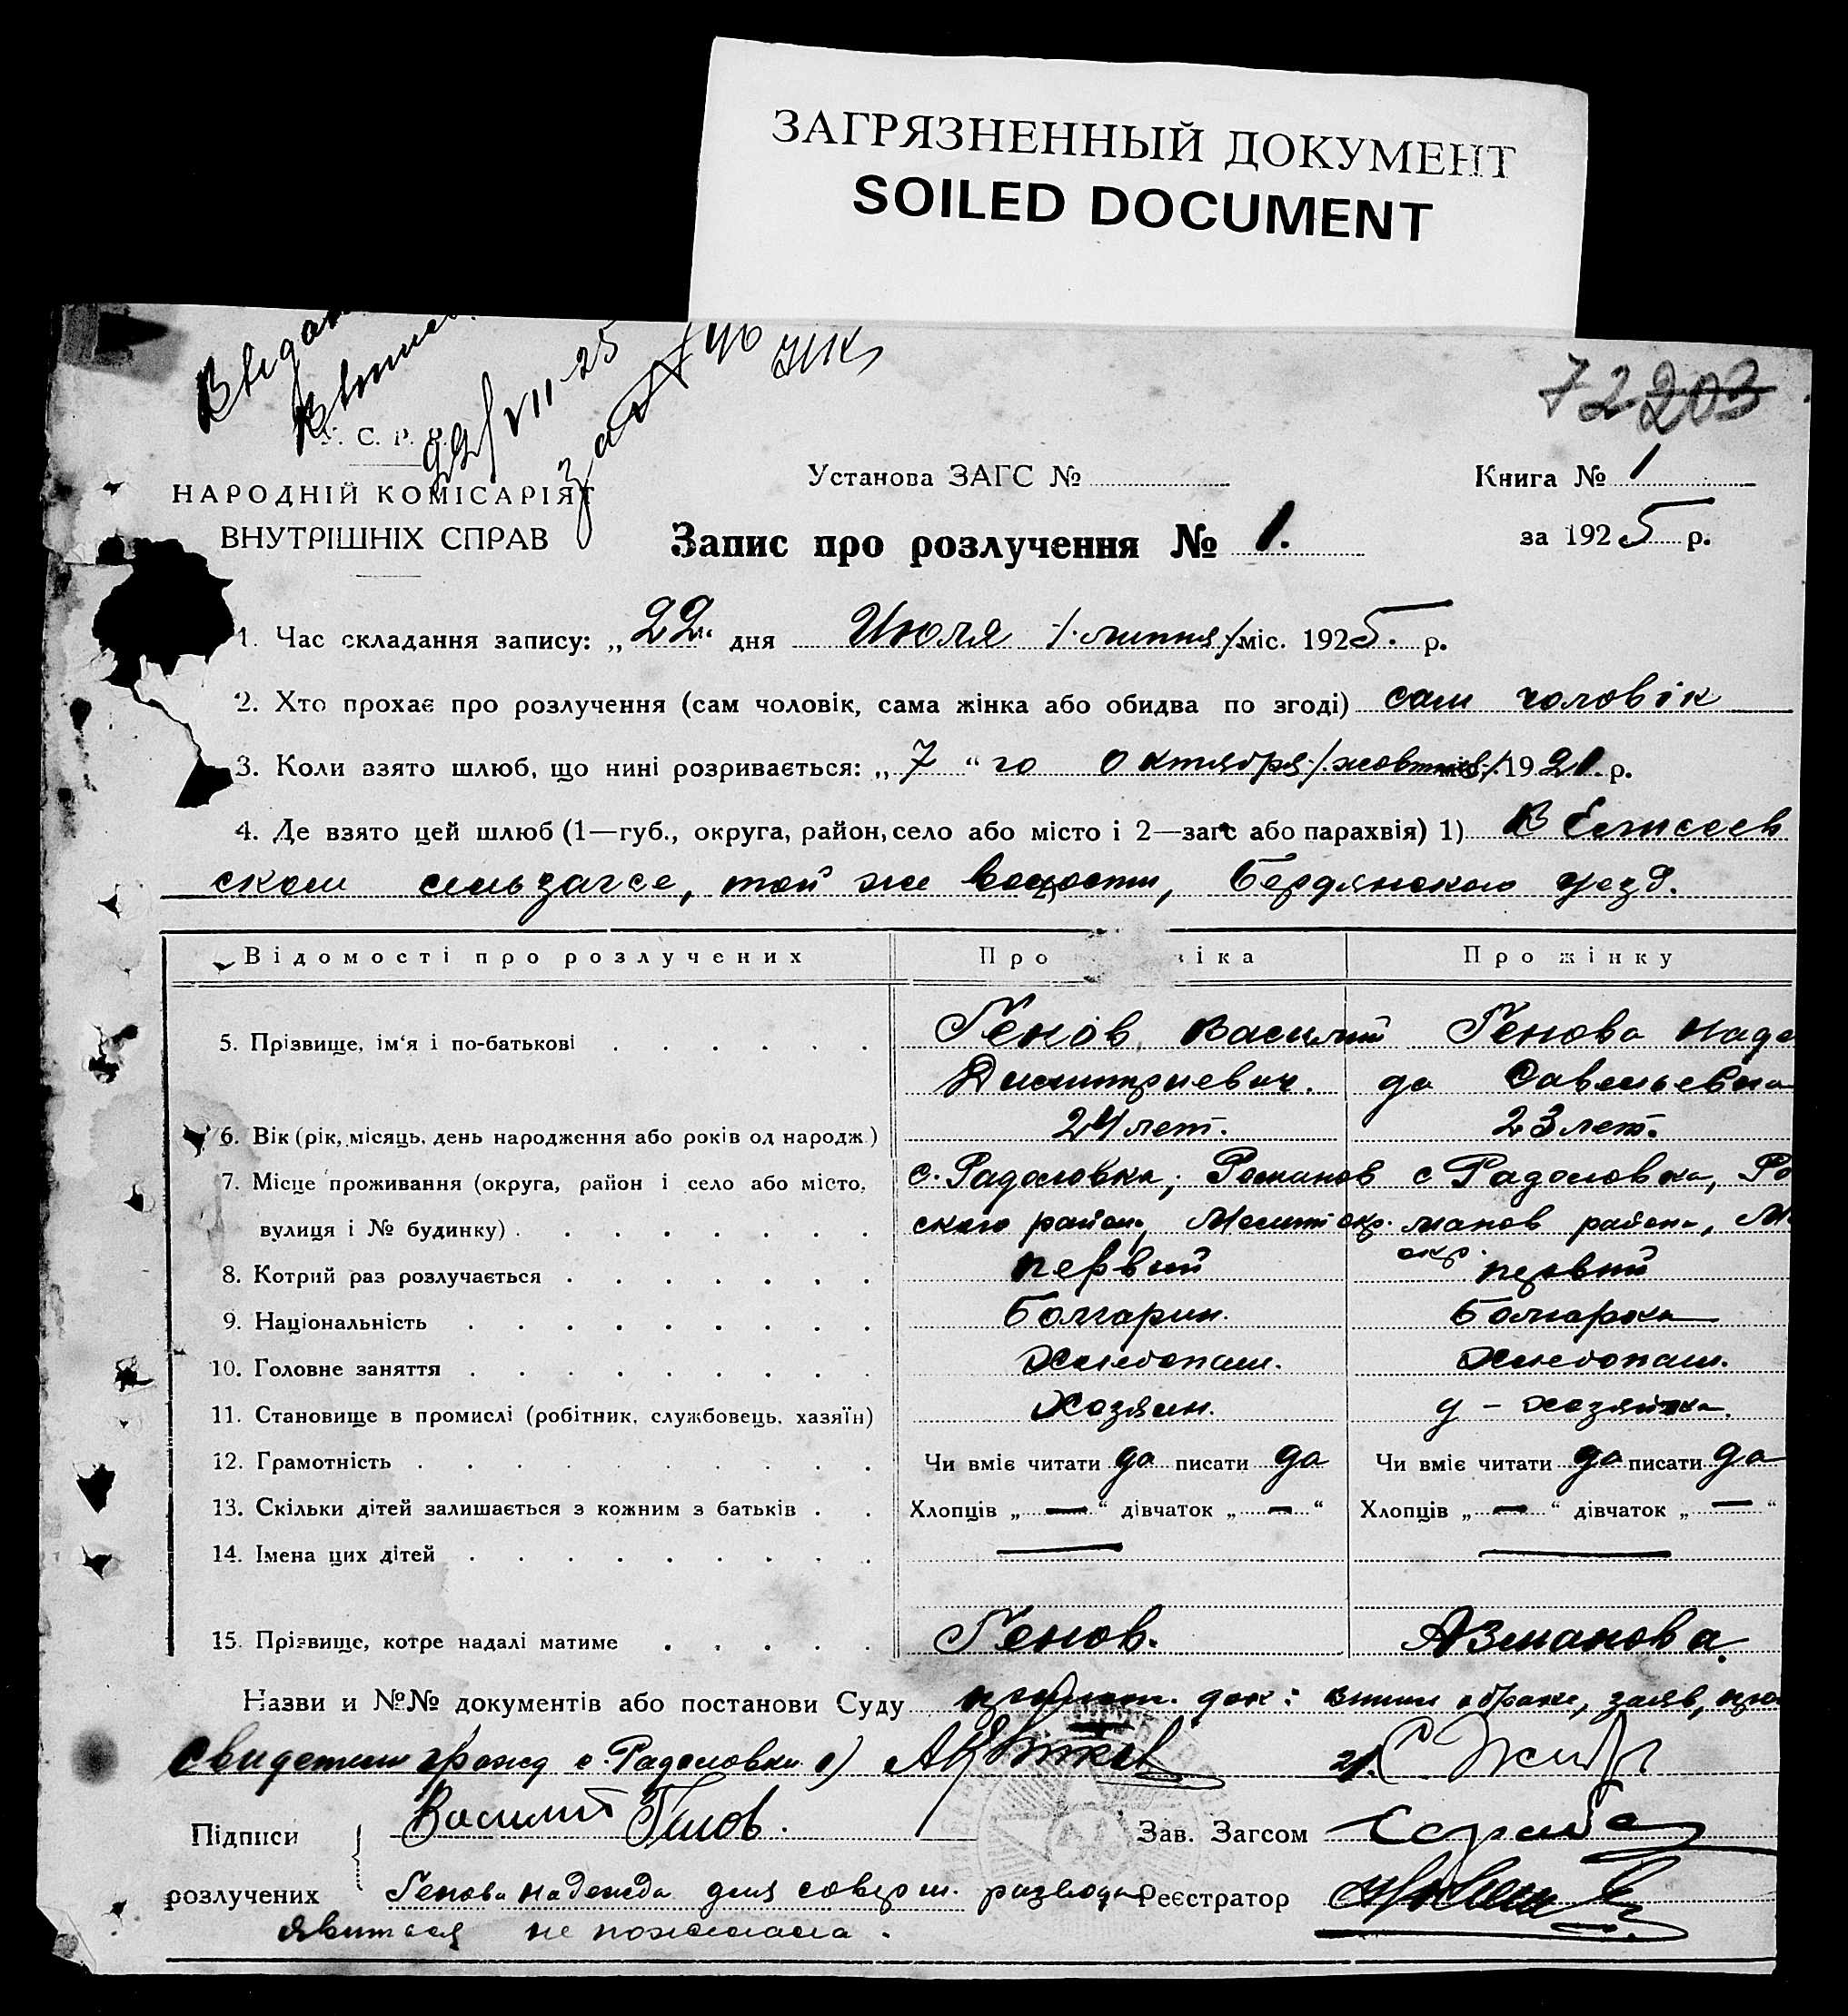 ЗАГРЯЗНЕННЫЙ ДОКУМЕНТ
SOILED DOCUMENT
22/VII-25
72 203
У. С. Р. Р.
НАРОДНІЙ КОМІСАРІЯТ
ВНУТРІШНІХ СПРАВ
Установа ЗАГС №
Книга № 1
Запис про розлучення № 1.
за 1925 р.
1. Час складання запису: „22“ дня Июля /липня/ міс. 1925. р.
2. Хто прохає про розлучення (сам чоловік, сама жінка або обидва по згоді) сам чоловік
3. Коли взято шлюб, що нині розривається: „7“ го октября /жовтня/ 1921. р.
4. Де взято цей шлюб (1—губ., округа, район, село або місто і 2—загс або парахвія) 1) В Елисеев
ском сельзагсе, той же волости, Бердянского уезд.
Відомості про розлучених
Про іка
Про жінку
5. Прізвище, ім'я і по-батькові
Генов Василий
Димитриевич.
Генова Наде
да Савельевна
6. Вік (рік, місяць, день народження або років од народж.)
24 лет.
23 лет.
7. Місце проживання (округа, район і село або місто,
вулиця і № будинку)
с. Радоловка, Романов
ского района, Мелит окр.
с Радоловка, Ро
манов района, М
окр.
8. Котрий раз розлучається
первый
первый
9. Національність
Болгарин.
Болгарка
10. Головне заняття
Хлебопаш.
Хлебопаш.
11. Становище в промислі (робітник, службовець, хазяїн)
Хозяин.
д - хозяйка.
12. Грамотність
Чи вміє читати да писати да
Чи вміє читати да писати да
13. Скільки дітей залишається з кожним з батьків
Хлопців „—“ дівчаток „—“
Хлопців „—“ дівчаток „—“
14. Імена цих дітей
—
—
15. Прізвище, котре надалі матиме
Генов.
Азманова.
Назви и №№ документів або постанови Суду док: о браке, заяв,
свидетели гражд с. Радоловки 1) 2)
Підписи
розлучених
Василий Генов.
Зав. Загсом
Генова Надежда для соверш. развода
Реєстратор
явиться не пожелала.